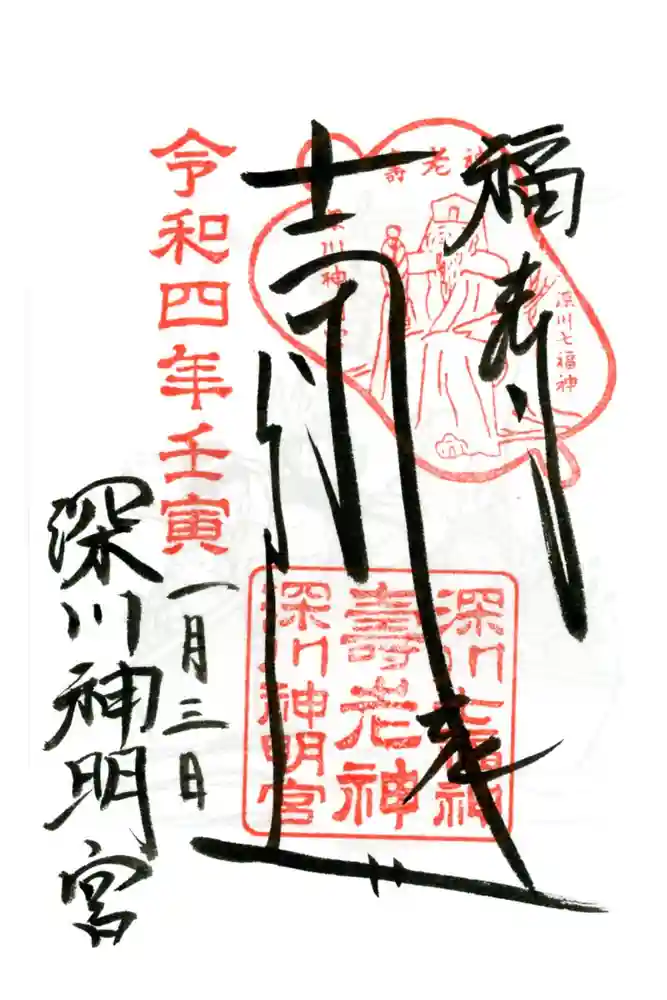 福寿
壽老神
深川七福神
深川神明宮
深川七福神
壽老神
深川神明宮
令和四年壬寅
一月三日
深川神明宮